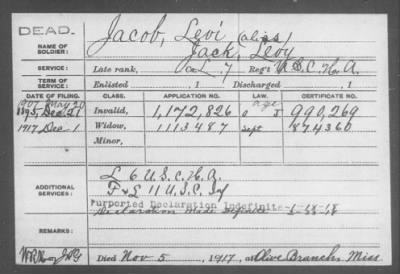 DEAD.
NAME OF SOLDIER:
Jacob, Levi (alias)
Jack, Levy
SERVICE:
Late rank, Co. L. 7 Reg't U.S.C.H.A.
TERM OF SERVICE:
Enlisted , 1 Discharged , 1
DATE OF FILING. CLASS. APPLICATION NO. LAW. CERTIFICATE NO.
1907 May 20 age
1895, Dec. 21 Invalid, 1,172,826 990,269
1917 Dec-1 Widow, 1113487 Sept 874360
Minor,
ADDITIONAL SERVICES:
L 6 U.S.C.H.A.
F & L 11 U.S.C. Inf
Purported Declaration Indefinite
Declaration Made Definite
REMARKS:
Died Nov 5, 1917, at Olive Branch, Miss